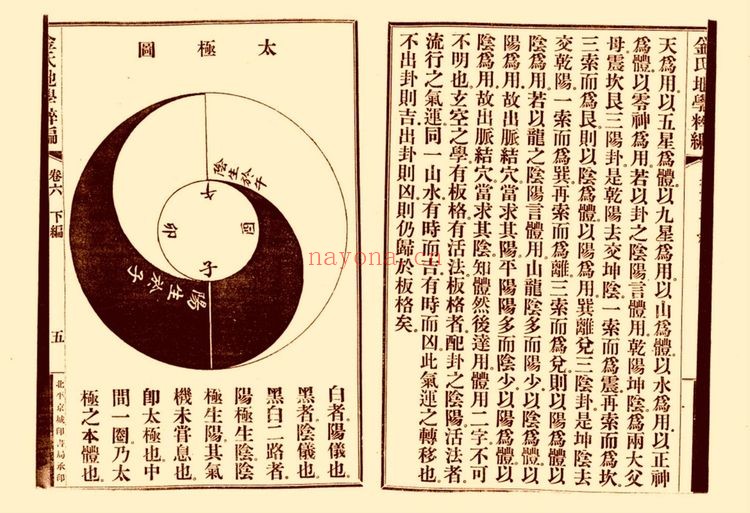 金氏地學粹編
天爲用以五星爲體以九星爲用以山爲體以水爲用以正神
爲體以零神爲用若以卦之陰陽言體用乾陽坤陰爲兩大父
母震坎艮三陽卦是乾陽去交坤陰一索而爲震再索而爲坎
三索而爲艮則以陰爲體以陽爲用巽離兌三陰卦是坤陰去
交乾陽一索而爲巽再索而爲離三索而爲兌則以陽爲體以
陰爲用若以龍之陰陽言體用山龍陰多而陽少以陰爲體以
陽爲用故出脈結穴當求其陽平陽陽多而陰少以陽爲體以
陰爲用故出脈結穴當求其陰知體然後達用體用二字不可
不明也玄空之學有板格有活法板格者配卦之陰陽活法者
流行之氣運同一山水有時而吉有時而凶此氣運之轉移也
不出卦則吉出卦則凶則仍歸於板格矣
太極圖
陰生於午
午
卯
酉
子
陽生於子
白者陽儀也
黑者陰儀也
黑白二路者
陽極生陰陰
極生陽其氣
機未嘗息也
卽太極也中
間一圈乃太
極之本體也
金氏地學粹編
卷六 下編
五
北平京城印書局承印
nayona.cn